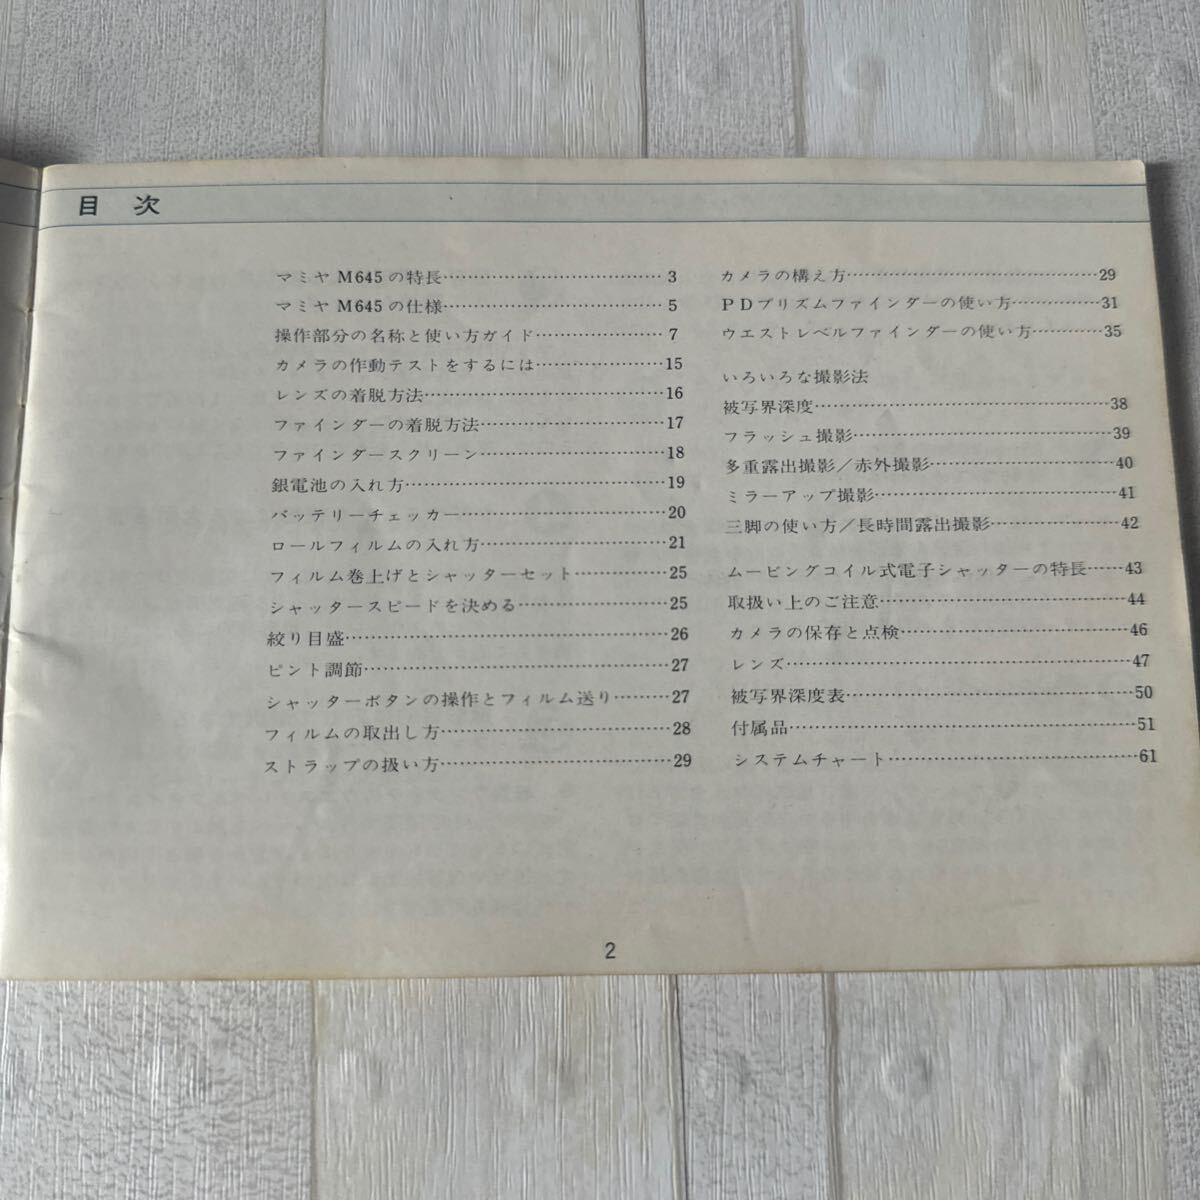 目 次
マミヤ M645 の特長……………………………3
マミヤ M645 の仕様……………………………5
操作部分の名称と使い方ガイド………………7
カメラの作動テストをするには………………15
レンズの着脱方法………………………………16
ファインダーの着脱方法………………………17
ファインダースクリーン………………………18
銀電池の入れ方…………………………………19
バッテリーチェッカー…………………………20
ロールフィルムの入れ方………………………21
フィルム巻上げとシャッターセット…………25
シャッタースピードを決める…………………25
絞り目盛…………………………………………26
ピント調節………………………………………27
シャッターボタンの操作とフィルム送り……27
フィルムの取出し方……………………………28
ストラップの扱い方……………………………29
カメラの構え方…………………………………29
PDプリズムファインダーの使い方…………31
ウエストレベルファインダーの使い方………35
いろいろな撮影法
被写界深度………………………………………38
フラッシュ撮影…………………………………39
多重露出撮影/赤外撮影………………………40
ミラーアップ撮影………………………………41
三脚の使い方/長時間露出撮影………………42
ムービングコイル式電子シャッターの特長……43
取扱い上のご注意………………………………44
カメラの保存と点検……………………………46
レンズ……………………………………………47
被写界深度表……………………………………50
付属品……………………………………………51
システムチャート………………………………61
2